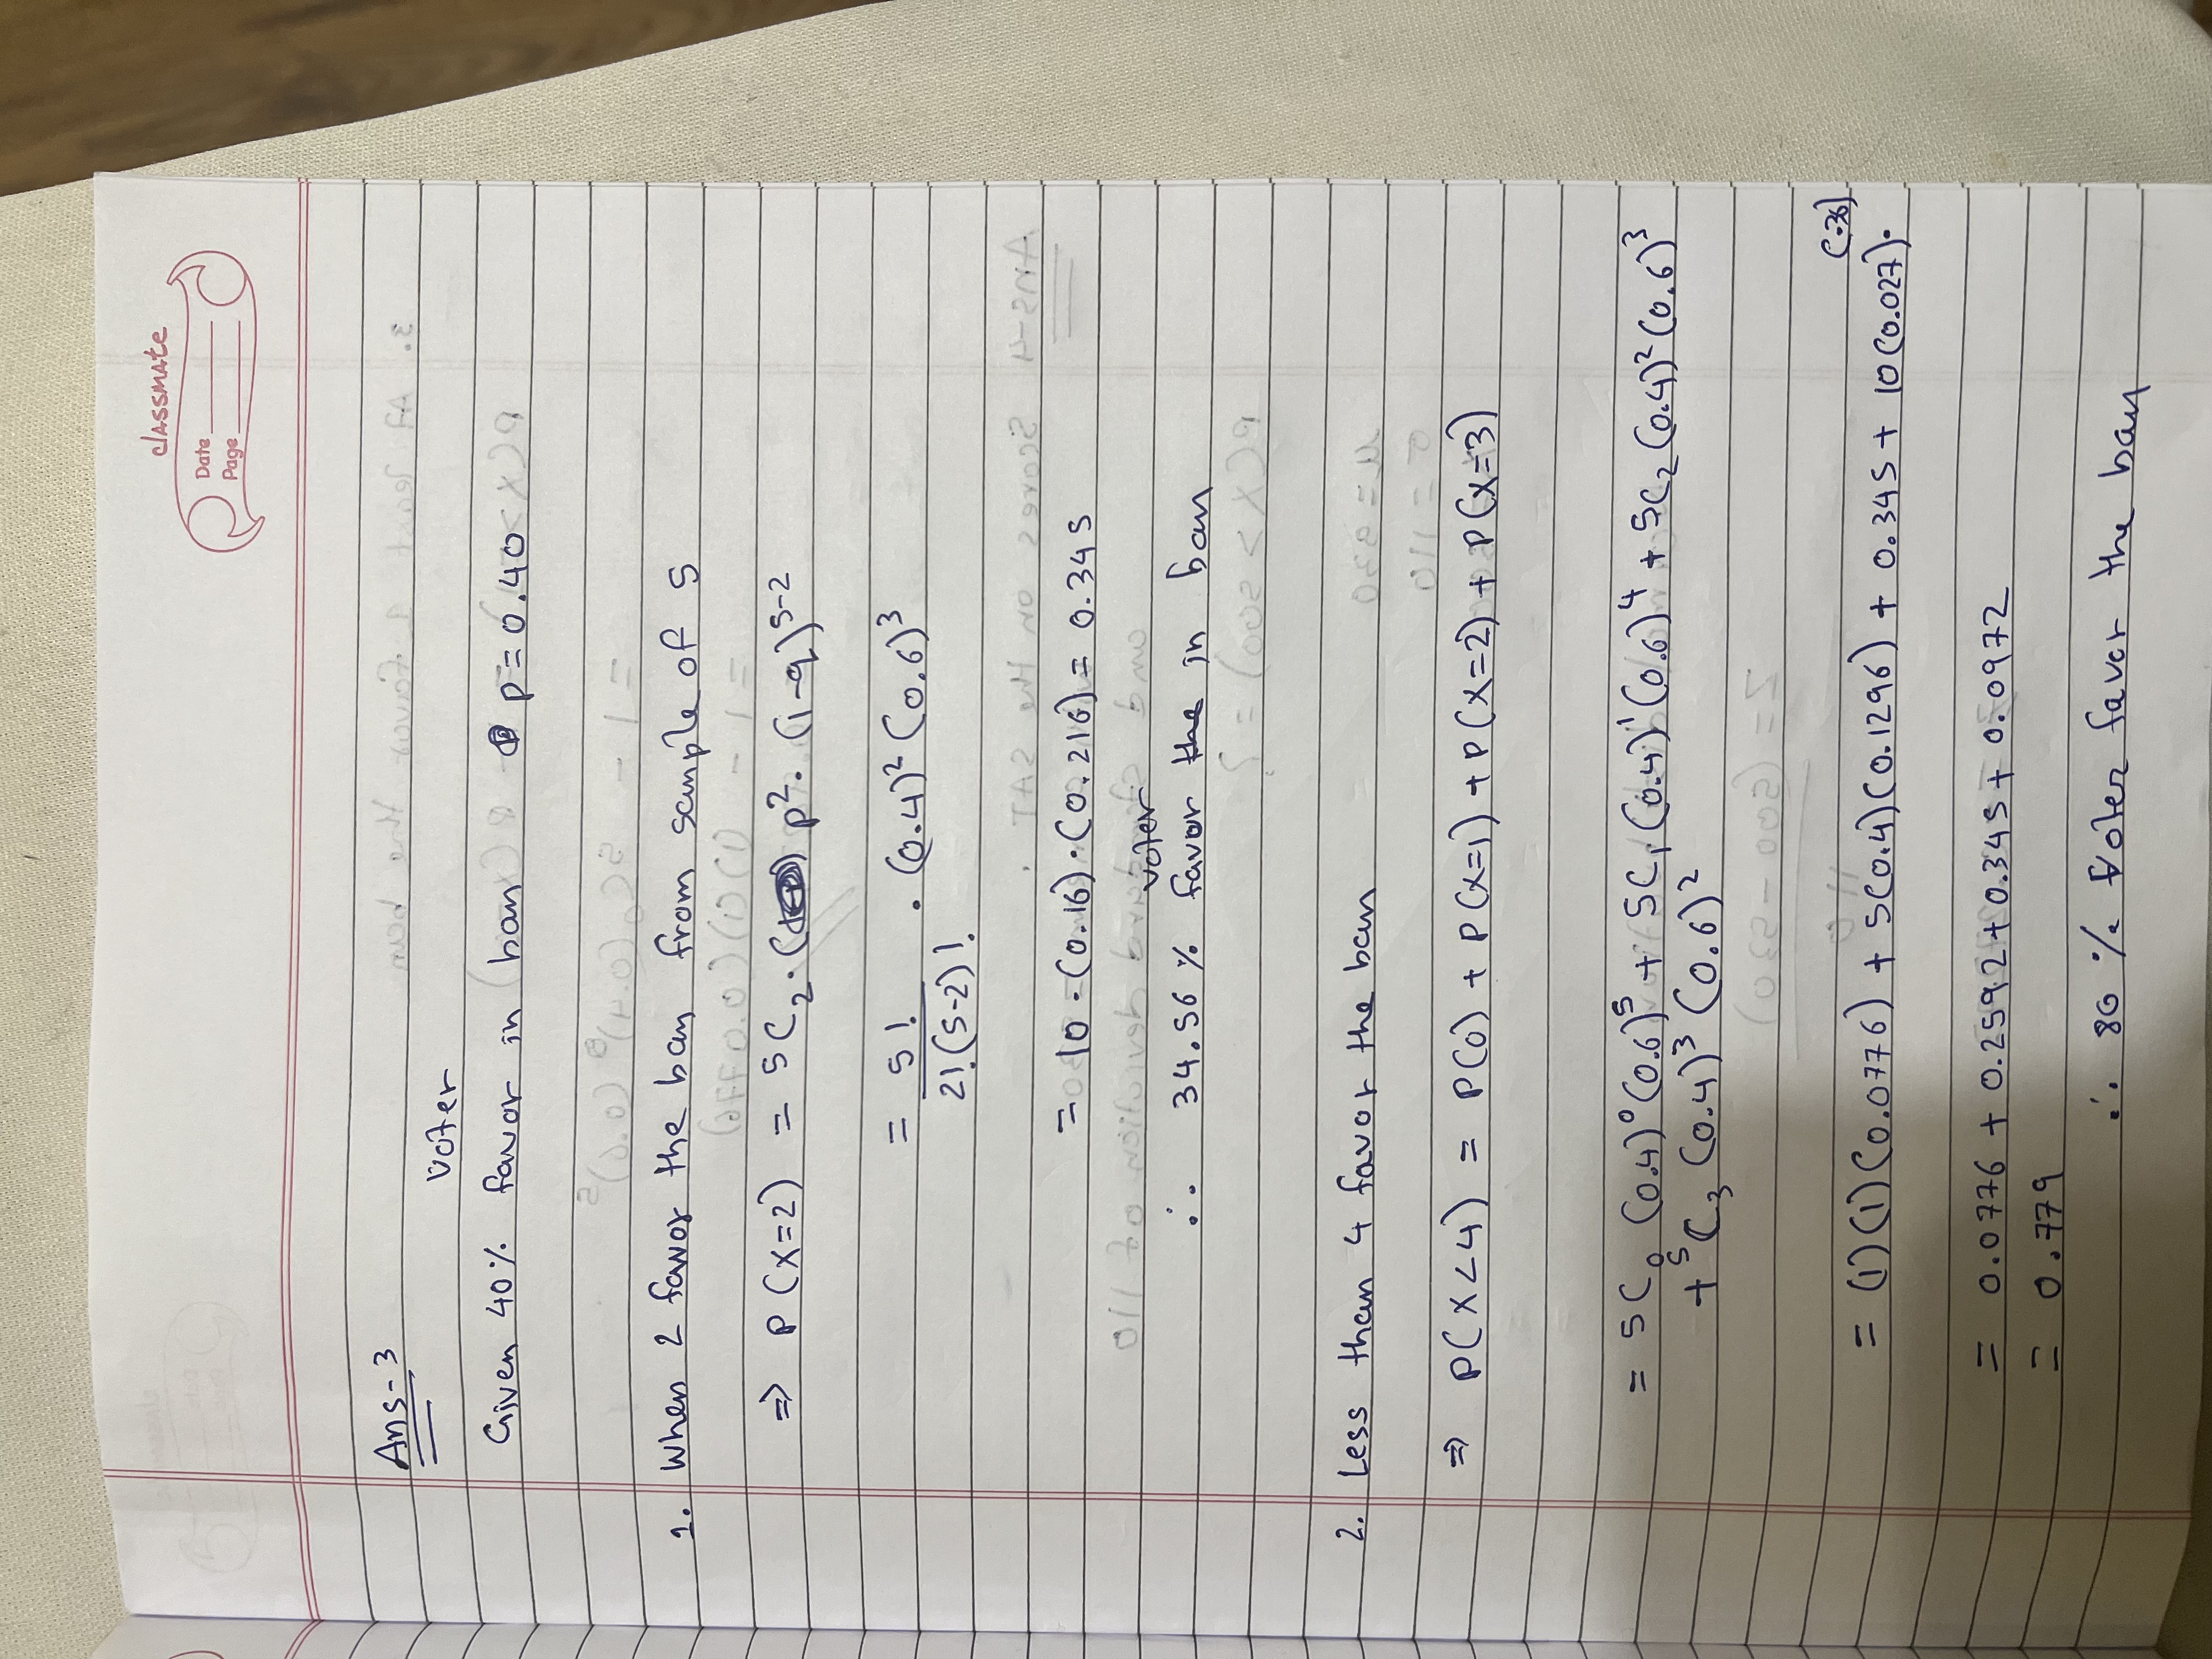 classmate
Date
Page
Ans-3
voter
Given 40% favor in ban p=0.40
1. When 2 favor the ban from sample of 5
⇒ P(X=2) = 5C₂ . p². (1-q)⁵⁻²
= 5! . (0.4)² (0.6)³
2!(5-2)!
= 10 . (0.16) . (0.216) = 0.345
voter
∴ 34.56 % favor the in ban
2. Less than 4 favor the ban
⇒ P(X<4) = P(0) + P(X=1) + P(X=2) + P(X=3)
= 5C₀ (0.4)⁰ (0.6)⁵ + 5C₁ (0.4)¹ (0.6)⁴ + 5C₂ (0.4)² (0.6)³
+ ⁵C₃ (0.4)³ (0.6)²
(.36)
= (1)(1)(0.0776) + 5(0.4)(0.1296) + 0.345 + 10(0.027).
= 0.0776 + 0.2592 + 0.345 + 0.0972
= 0.779
∴ 80 % Voter favor the ban